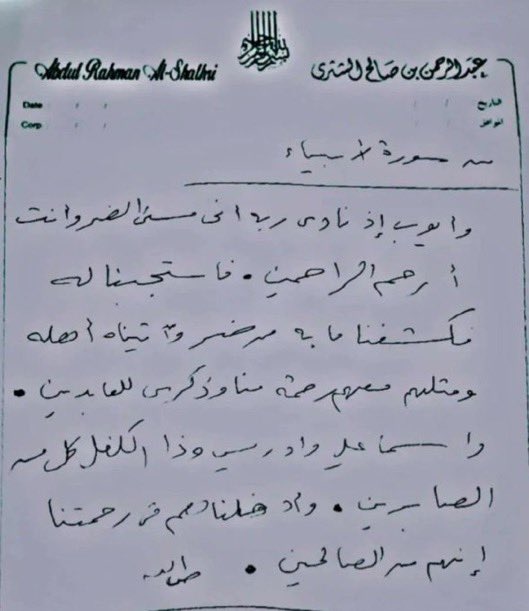 بسم الله الرحمن الرحيم
Abdul Rahman Al-Shathri عبدالرحمن بن صالح الشثري
Date / / التاريخ / /
Corp. / / الموافق / /
من سورة الأنبياء
وأيوب إذ نادى ربه أنى مسني الضر وأنت
أرحم الراحمين . فاستجبنا له
فكشفنا ما به من ضر وآتيناه أهله
ومثلهم معهم رحمة منا وذكرى للعابدين .
وإسماعيل وإدريس وذا الكفل كل من
الصابرين . وأدخلناهم في رحمتنا
إنهم من الصالحين .